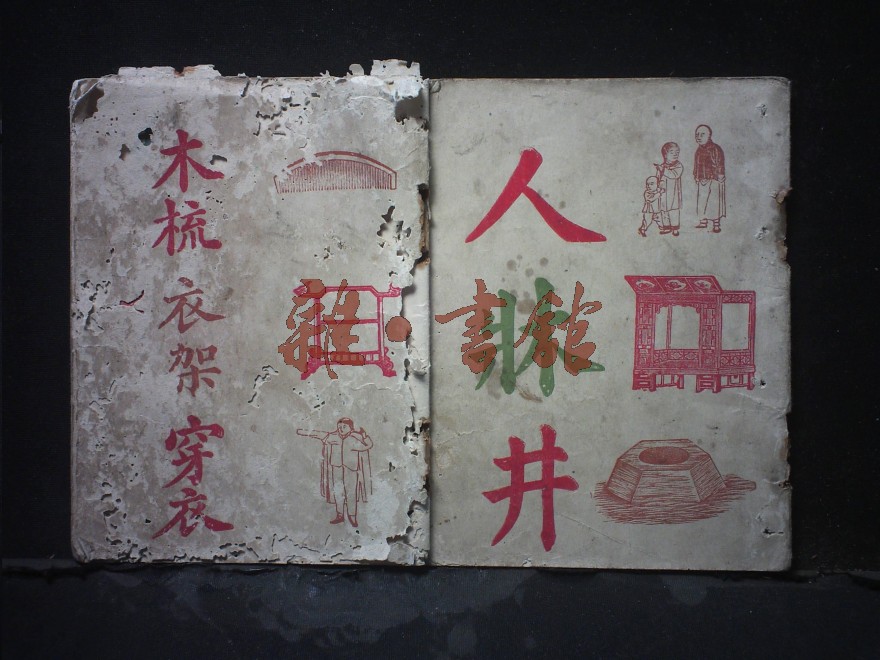 人牀井
木梳 衣架 穿衣
雜·書館